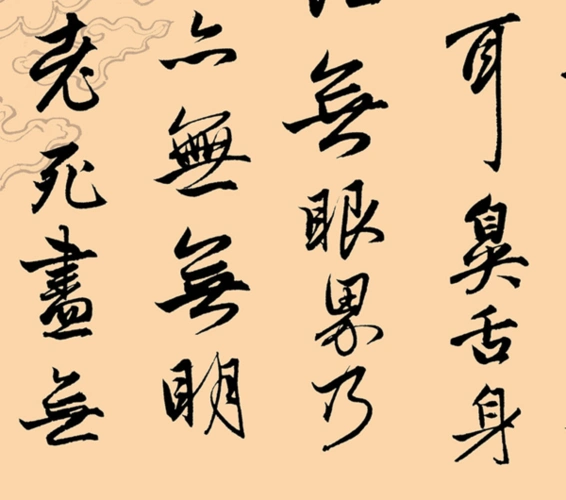 耳鼻舌身
無眼界乃
亦無無明
老死盡無